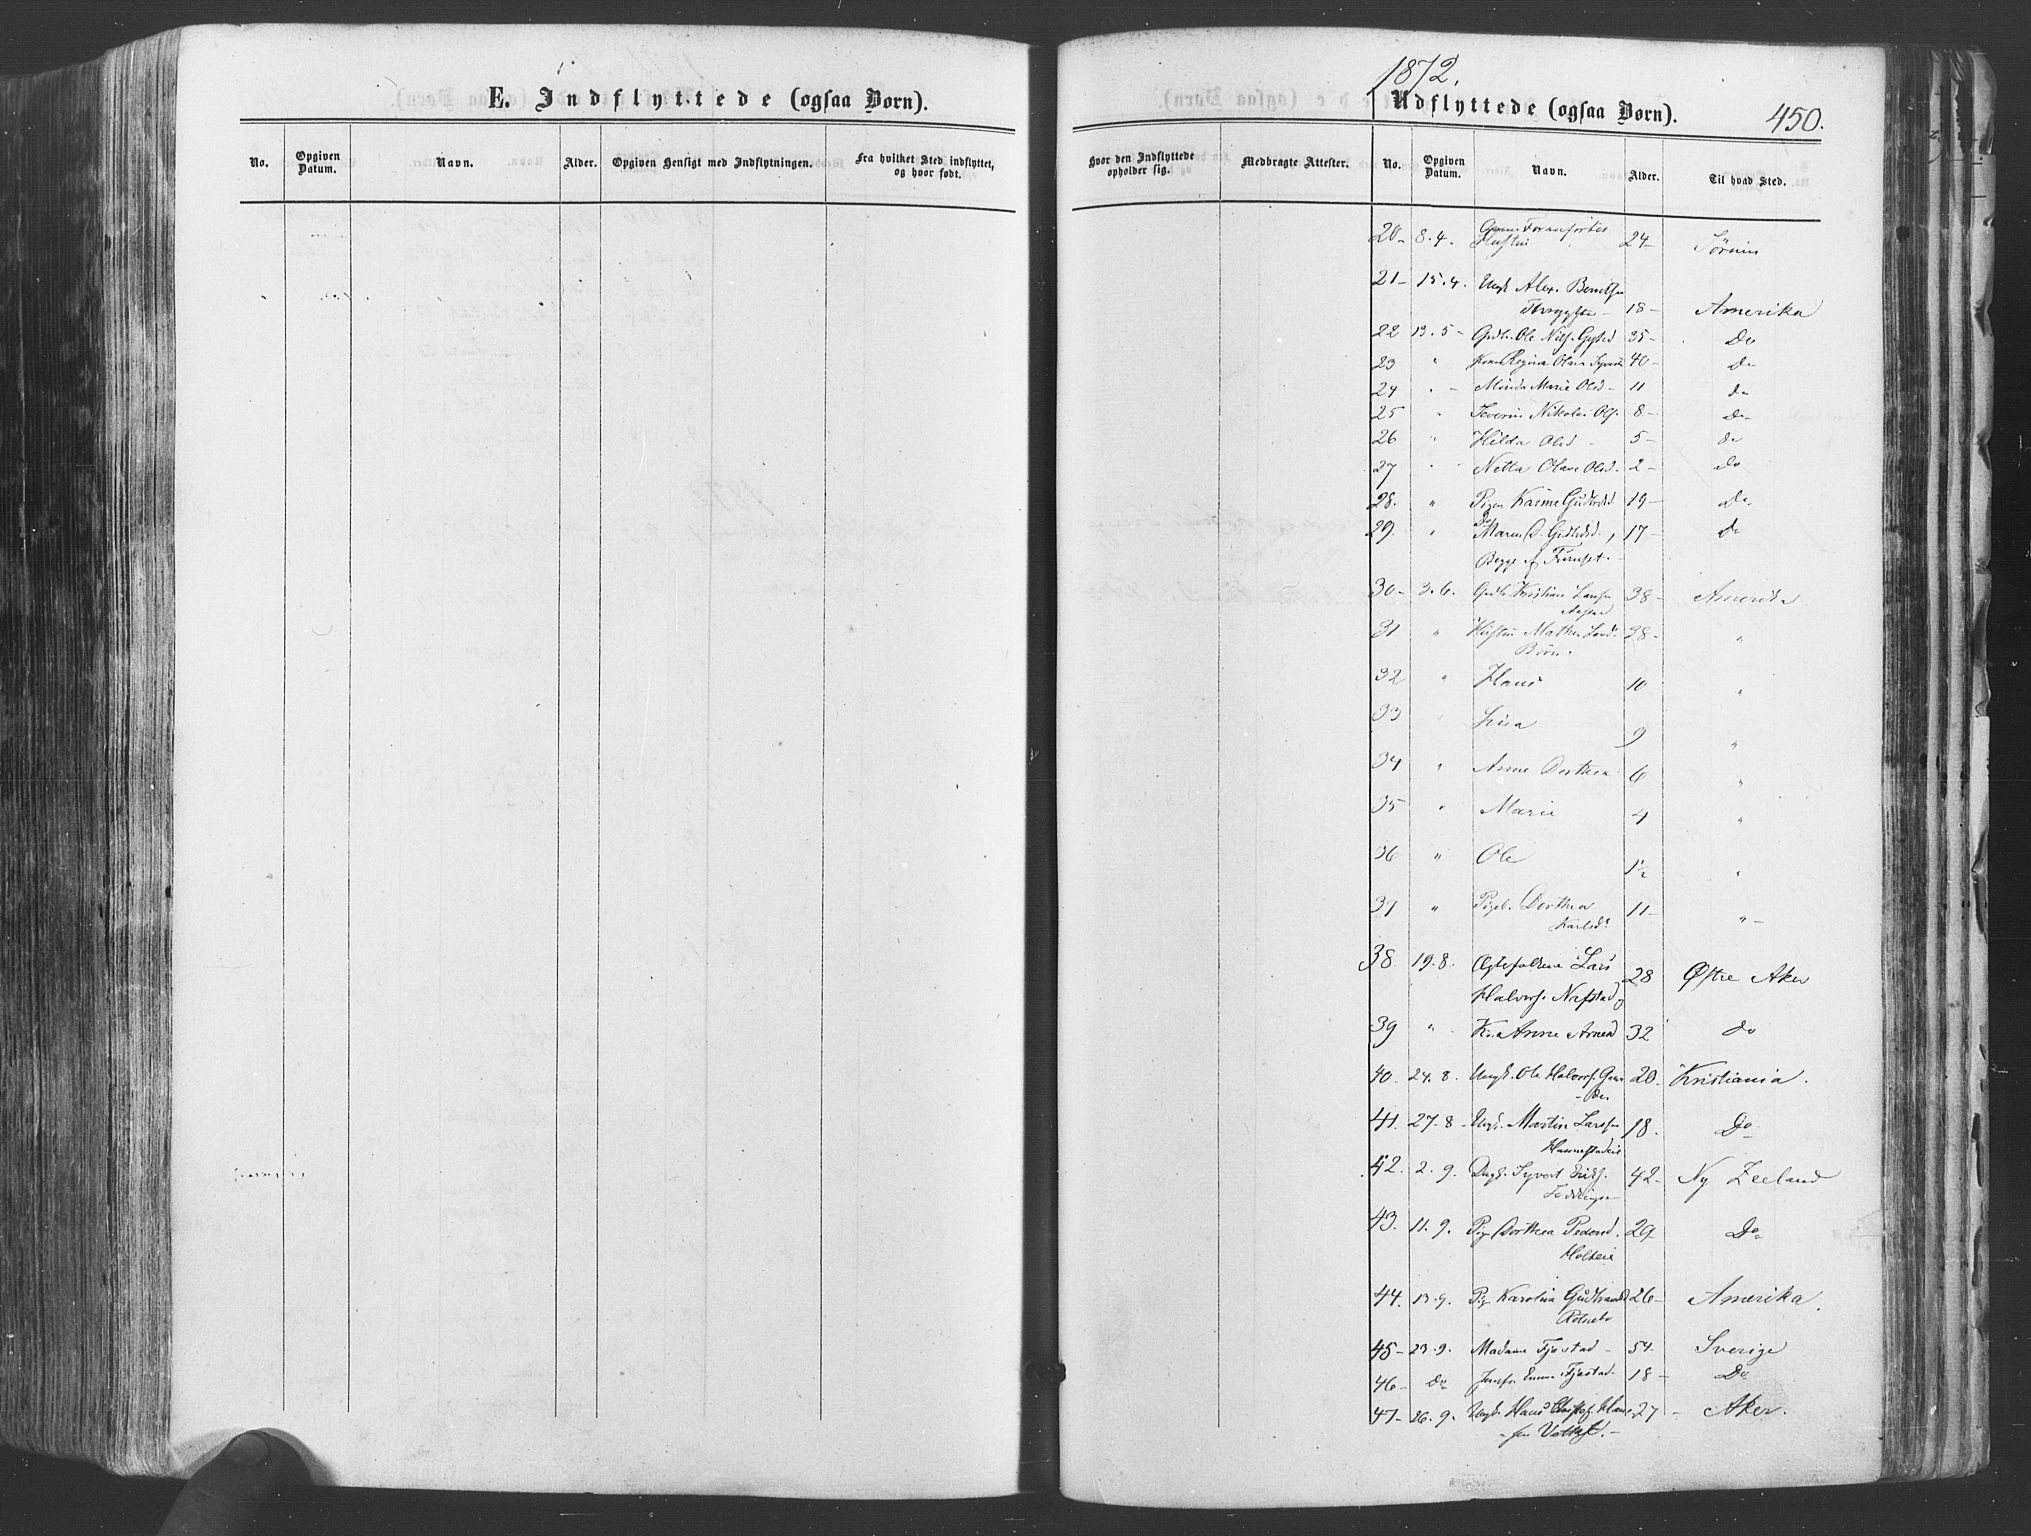 E. Indflyttede (ogsaa Børn).
No.
Opgiven Datum.
Navn.
Alder.
Opgiven Hensigt med Indflytningen.
Fra hvilket Sted indflyttet, og hvor født.
1872.
Udflyttede (ogsaa Børn).
450.
Hvor den Indflyttede opholder sig.
Medbragte Attester.
No.
Opgiven Datum.
Navn.
Alder.
Til hvad Sted.
20- 8.4. Hustru 24-
21- 15.4. Ungk. Alex. Berntsen
18- Amerika
22 13.5- Gdbr. Ole Nils. 35- Do
23 " Kone Regina Olava 40- do
24 " - Minda Marie Olsd- 11 do
25 " Severin Nikolai Ols. 8- do
26 " Hilda Olsd - 5- do
27 " Netta Olava Olsd. 2- do
28. " Pigen Karine Gudbrdsd. 19- do
29. " Do Maren D. Gudbrdsd., 17- do
Begge af
30- 3.6. Gdbr. Kristian Larsen 38- Amerika
31 " Hustru Mathea 38- "
Børn.
32 " Hans 10 "
33 " Lisa 9 "
34 " Anne Dorthea 6 "
35 " Marie 4 "
36 " Ole 1½ "
37 " Pigeb. Dorthea 11- "-
Karlsd.
38. 19.8. Ægtefolkene Lars 28 Østre Aker
Halvors. Nafstad,
39 " K. Anne Arnesd 32 do
40. 24.8. Ungk. Ole Halvors. 20. Kristiania.
41. 27.8- Ungk. Martin Larsen 18. Do
42. 2.9. Syvert 42- Ny Zeeland
43. 11.9. Pige Dorthea Pedersd. 29 Do
Holteie
44. 13.9. Pig Karolina Gudbrandsd 26- Amerika.
45- 23.9. Madame Fjøstad - 54. Sverige
46- Do Jomfr. Emma Fjøstad- 18- Do
47- 26.9. Ungk. Hans Christof. Han- 27 - Aker.
-sen